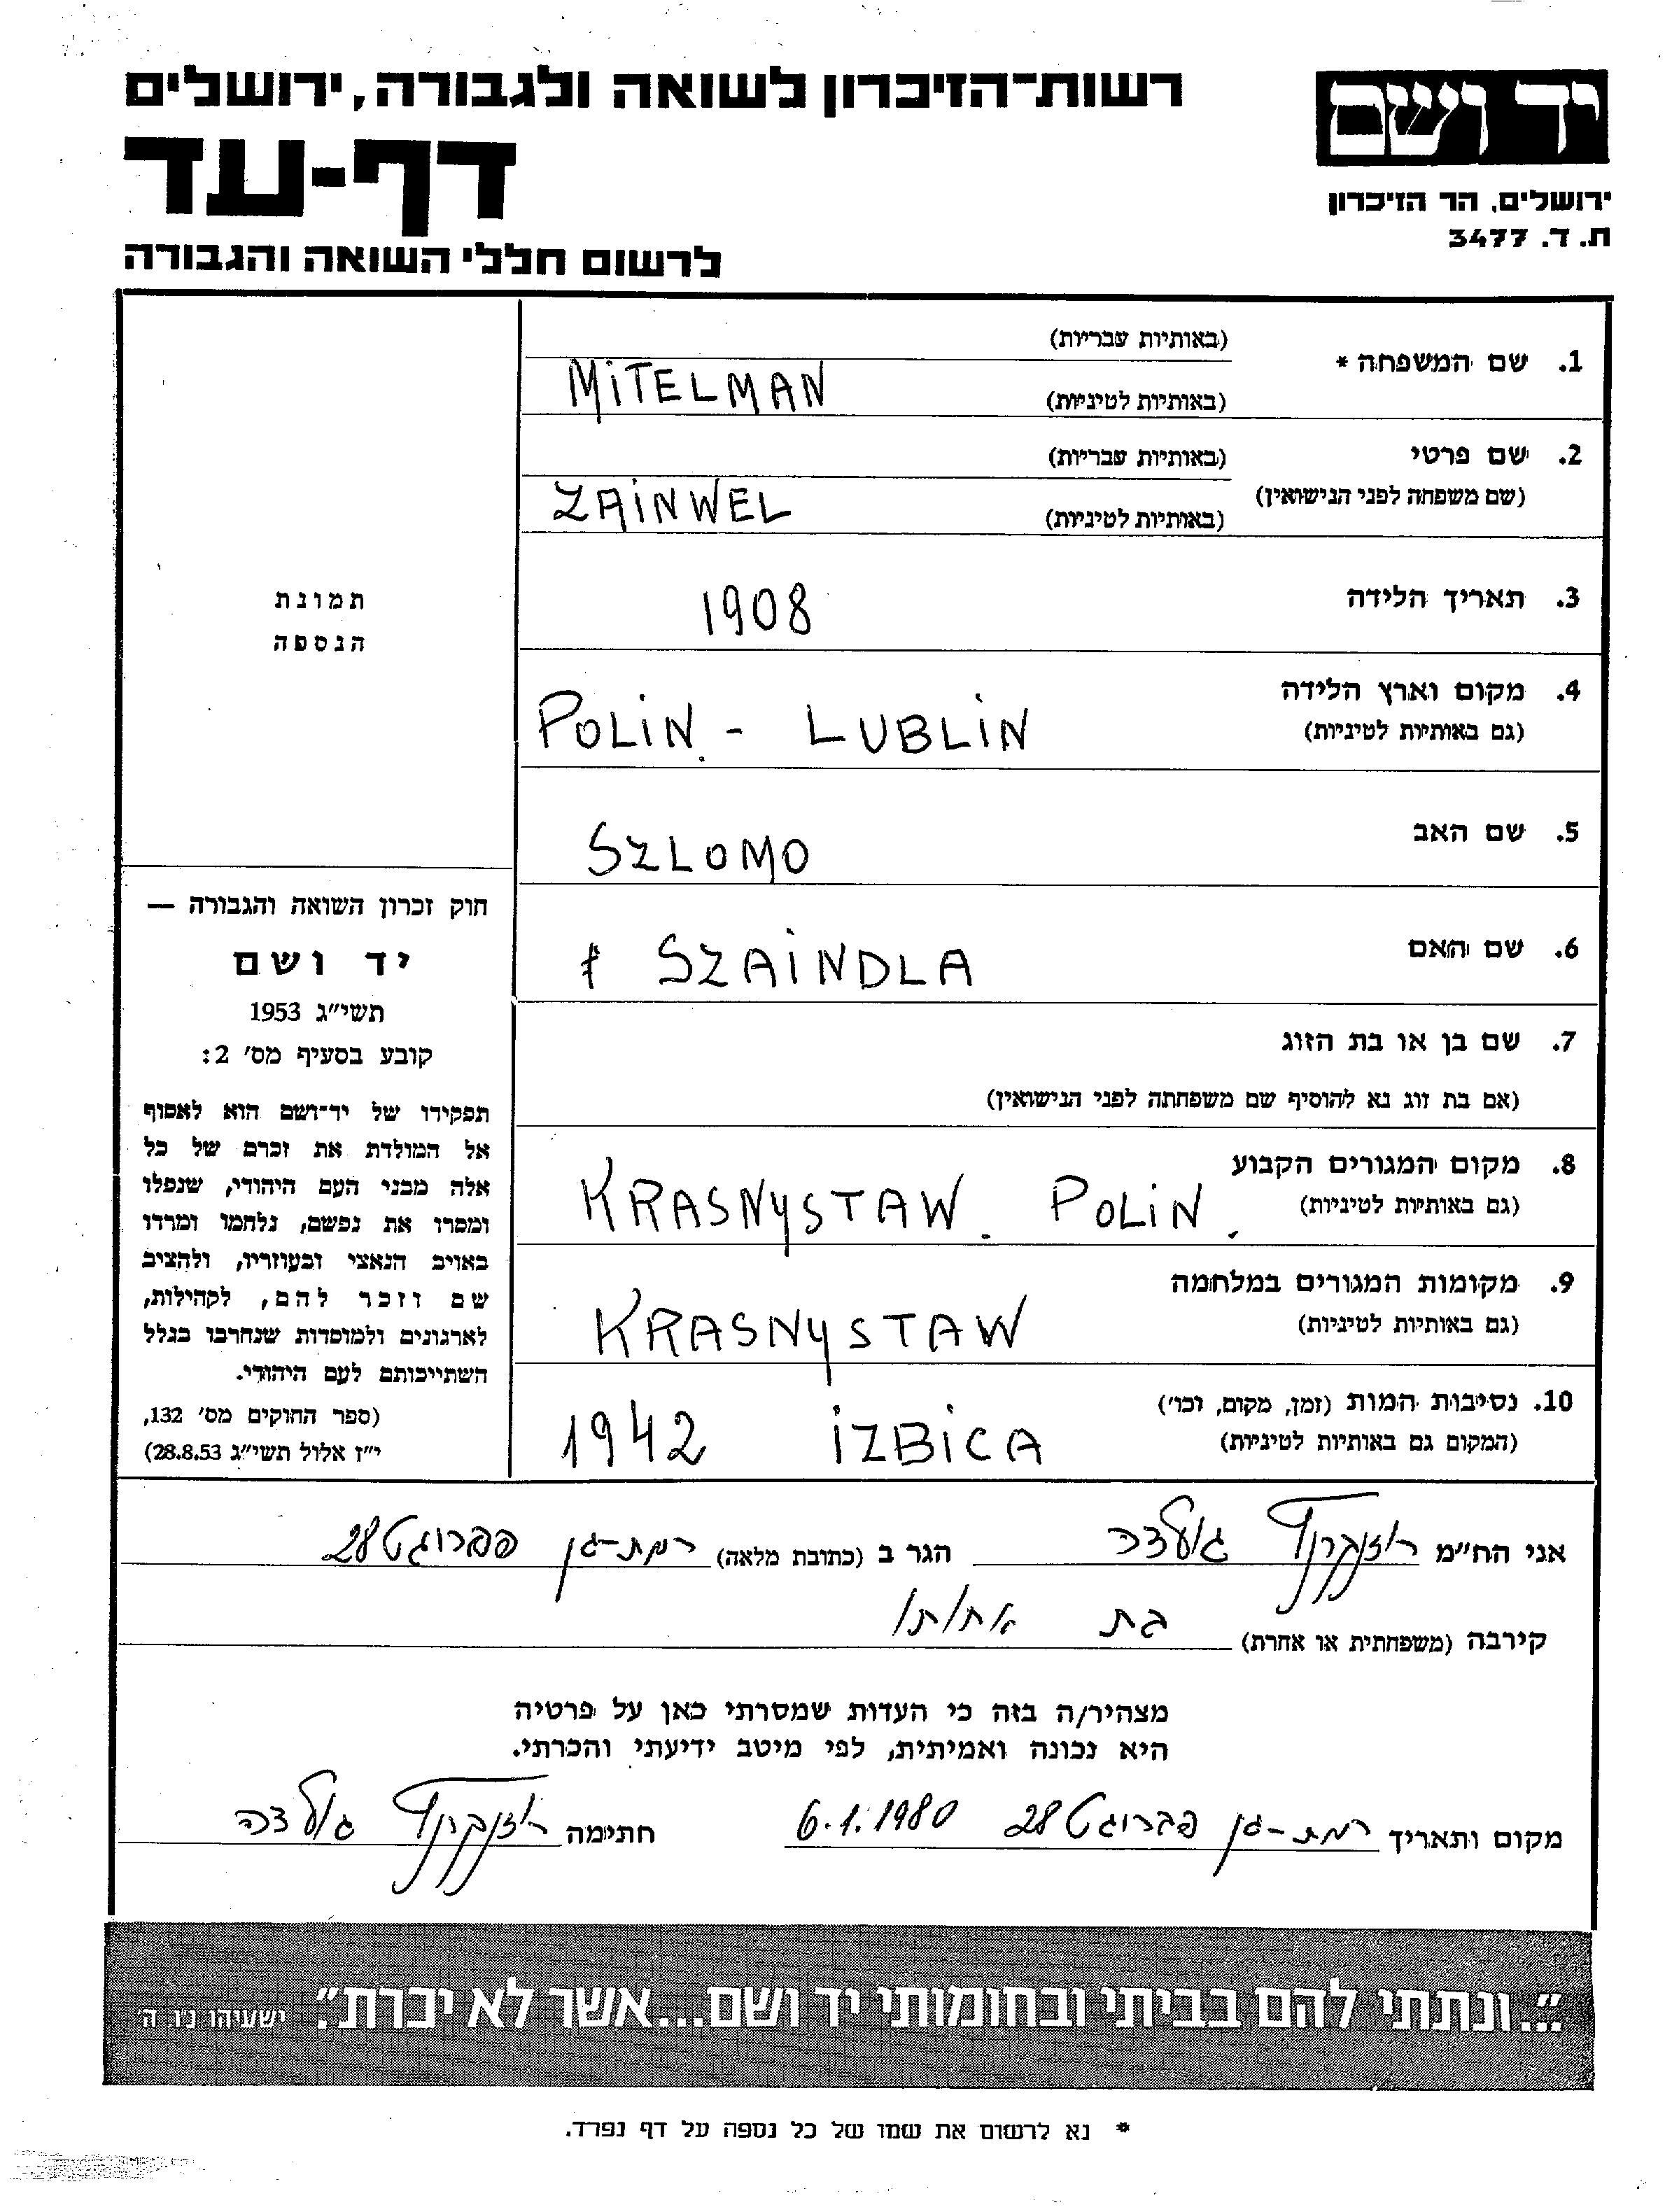 רשות-הזיכרון לשואה ולגבורה, ירושלים
יד ושם
דף-עד
ירושלים, הר הזיכרון
ת. ד. 3477
לרשום חללי השואה והגבורה
1. שם המשפחה *
(באותיות עבריות)
(באותיות לטיניות) MiTELMAN
2. שם פרטי
(שם משפחה לפני הנישואין)
(באותיות עבריות)
(באותיות לטיניות) ZAiNWEL
3. תאריך הלידה 1908
4. מקום וארץ הלידה
(גם באותיות לטיניות)
POLiN - LUBLiN
5. שם האב SZLOMO
6. שם האם SZAiNDLA
7. שם בן או בת הזוג
(אם בת זוג נא להוסיף שם משפחתה לפני הנישואין)
8. מקום המגורים הקבוע
(גם באותיות לטיניות)
KRASNySTAW. POLiN.
9. מקומות המגורים במלחמה
(גם באותיות לטיניות)
KRASNySTAW
10. נסיבות המות (זמן, מקום, וכו')
(המקום גם באותיות לטיניות)
1942 iZBiCA
תמונת
הנספה
חוק זכרון השואה והגבורה —
יד ושם
תשי״ג 1953
קובע בסעיף מס׳ 2:
תפקידו של יד-ושם הוא לאסוף
אל המולדת את זכרם של כל
אלה מבני העם היהודי, שנפלו
ומסרו את נפשם, נלחמו ומרדו
באויב הנאצי ובעוזריו, ולהציב
שם וזכר להם, לקהילות,
לארגונים ולמוסדות שנחרבו בגלל
השתייכותם לעם היהודי.
(ספר החוקים מס׳ 132,
י״ז אלול תשי״ג 28.8.53)
אני הח״מ גולדה הגר ב (כתובת מלאה) רמת-גן 28
קירבה (משפחתית או אחרת) בת אחותו
מצהיר/ה בזה כי העדות שמסרתי כאן על פרטיה
היא נכונה ואמיתית, לפי מיטב ידיעתי והכרתי.
מקום ותאריך רמת-גן 28 6.1.1980 חתימה גולדה
״...ונתתי להם בביתי ובחומותי יד ושם...אשר לא יכרת״. ישעיהו נ׳ו, ה׳
* נא לרשום את שמו של כל נספה על דף נפרד.